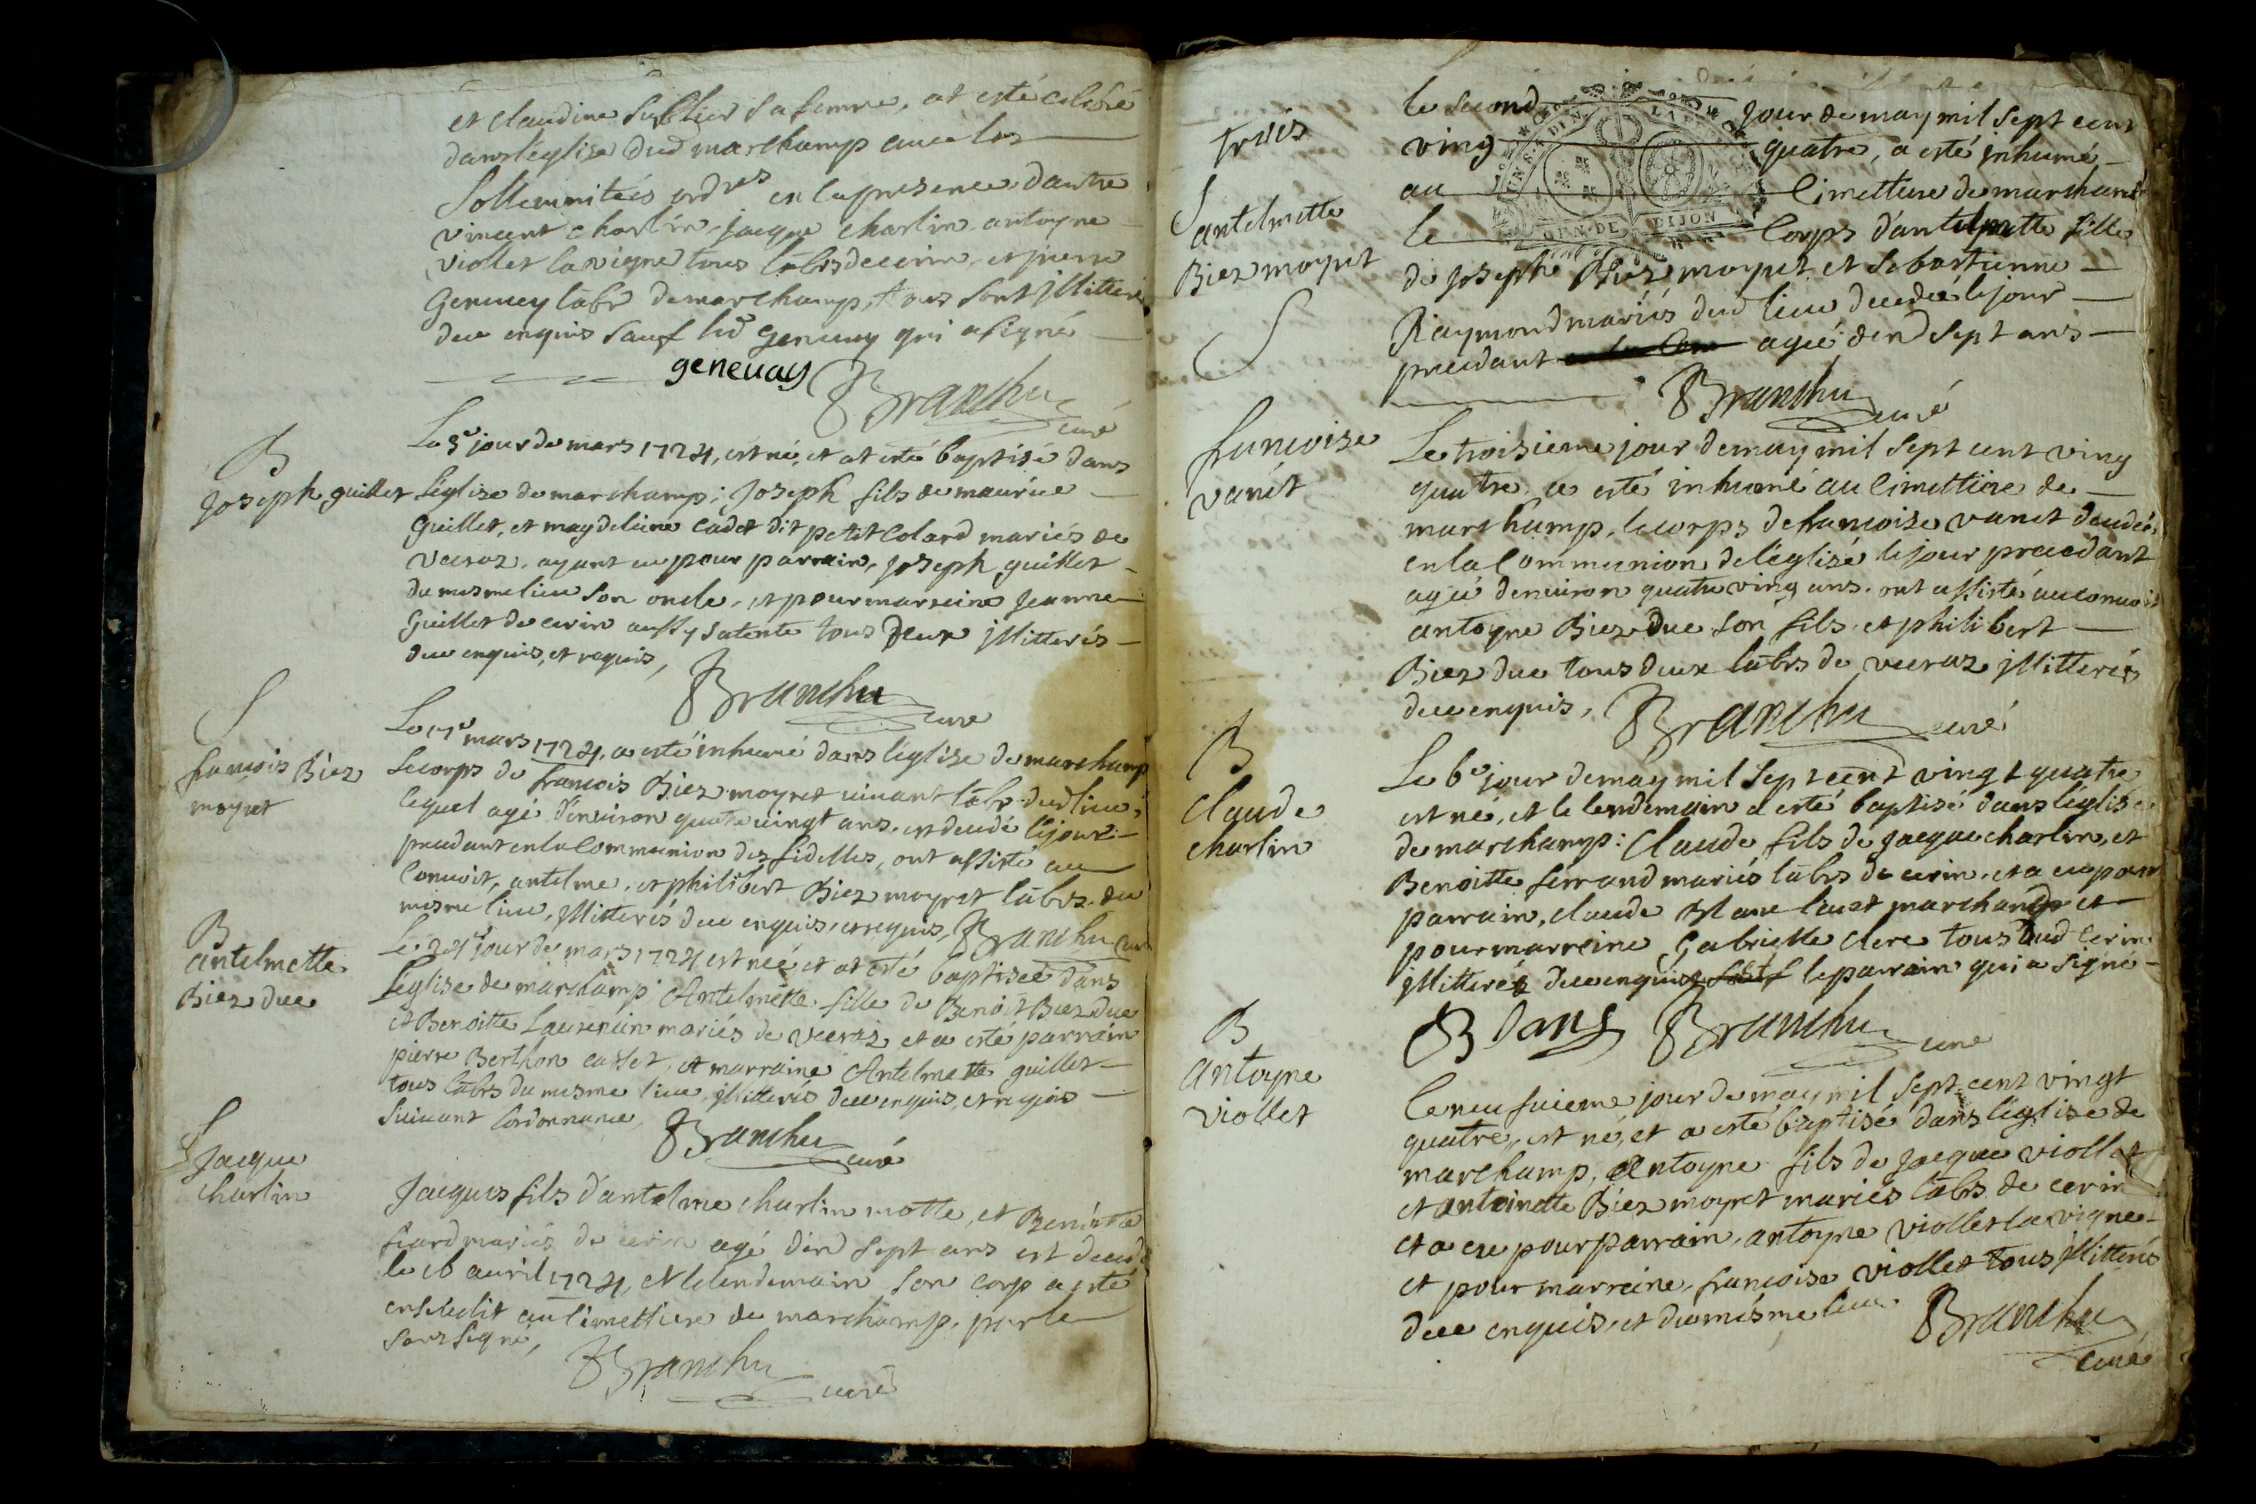 et claudine sa femme, at esté celebré
dans l'église dud marchamp avec les
sollemnitées ordres en la presence d'autre
vincent charlin, jacque charlin, antoyne
viollet lavigne tous labrs de cerin, et pierre
genevey labr de marchamp, tous sont illitterés
due enquis sauf led genevey qui a signé
genevay Branchu curé
B
Joseph guillet
Le 5e jour de mars 1724, est né, et at esté baptisé dans
l'église de marchamp; Joseph fils de maurice
guillet, et magdelaine cadet dit petit Colard mariés de
veeraz, ayant eu pour parrain, joseph guillet
du mesme lieu son oncle, et pour marreine jeanne
guillet de cerin aussy sa tente tous deux illitterés
due enquis, et requis,
Branchu curé
S
francois Biez
moyret
Le 17e mars 1724, a esté inhumé dans l'église de marchamp
le corps de francois Biez moyret vivant labr dud lieu,
lequel agé d'environ quatre vingt ans, est decedé le jour
precedant en la Communion des fidelles, ont assisté au
Convoit, antelme, et philibert Biez moyret labrs du
mesme lieu, illitterés due enquis, et requis, Branchu curé
B
antelmette
Biez due
Le 24e jour de mars 1724 est née et at esté baptisée dans
l'église de marchamp Antelmette fille de Benoit Biez due
et Benoitte Laurencin mariés de veeraz et a esté parrain
pierre Berthon casset, et marraine Antelmette guillet
tous labrs du mesme lieu, illitterés due enquis, et requis
suivant l'ordonnance,
Branchu curé
S
Jacque
charlin
Jacques fils d'antelme charlin motte, et Benoitte
fiard mariés de cerin agé d'end sept ans est decedé
le 16 avril 1724, et le lendemain son corp a esté
ensevelit au cimettiere de marchamp, par le
soussigné,
Branchu curé
trois
le second jour de may mil sept cent
ving quatre, a esté inhumé
au Cimettiere de marchamp
GEN. DE DIJON
S
antelmette
Biez moyret
S
le Corps d'antelmette fille
de joseph Biez moyret et Sebastienne
Raymond mariés dud lieu decedée le jour
precedant agée d'end sept ans
Branchu curé
francoise
vanet
Le troisieme jour de may mil sept cent ving
quatre, a esté inhumé au Cimettiere de
marchamp, le corps de francoise vanet decedée
en la Communion de l'églisé le jour precedant
agée d'environ quatre ving ans, ont assisté au convoit
antoyne Biez due son fils, et philibert
Biez due tous deux labrs de veeraz illitterés
due enquis, Branchu curé
B
Claude
charlin
Le 6e jour de may mil sept cent vingt quatre
est né, et le lendemain a esté baptisé dans l'église
de marchamp: Claude fils de jacque charlin, et
Benoitte ferrand mariés labrs de cerin, et a eu pour
parrain, claude Blanc marchand et
pour marreine, gabrielle clerc tous dud cerin
illitterés due enquis sauf le parrain qui a signé
B Lanc Branchu curé
B
antoyne
viollet
Le neufvieme jour de may mil sept cent vingt
quatre, est né, et a esté baptisé dans l'église de
marchamp, Antoyne fils de jacque viollet
et antoinette Biez moyret mariés labrs de cerin
et a eu pour parrain, antoyne viollet lavigne
et pour marreine, francoise viollet tous illitterés
due enquis, et du mesme lieu Branchu
curé